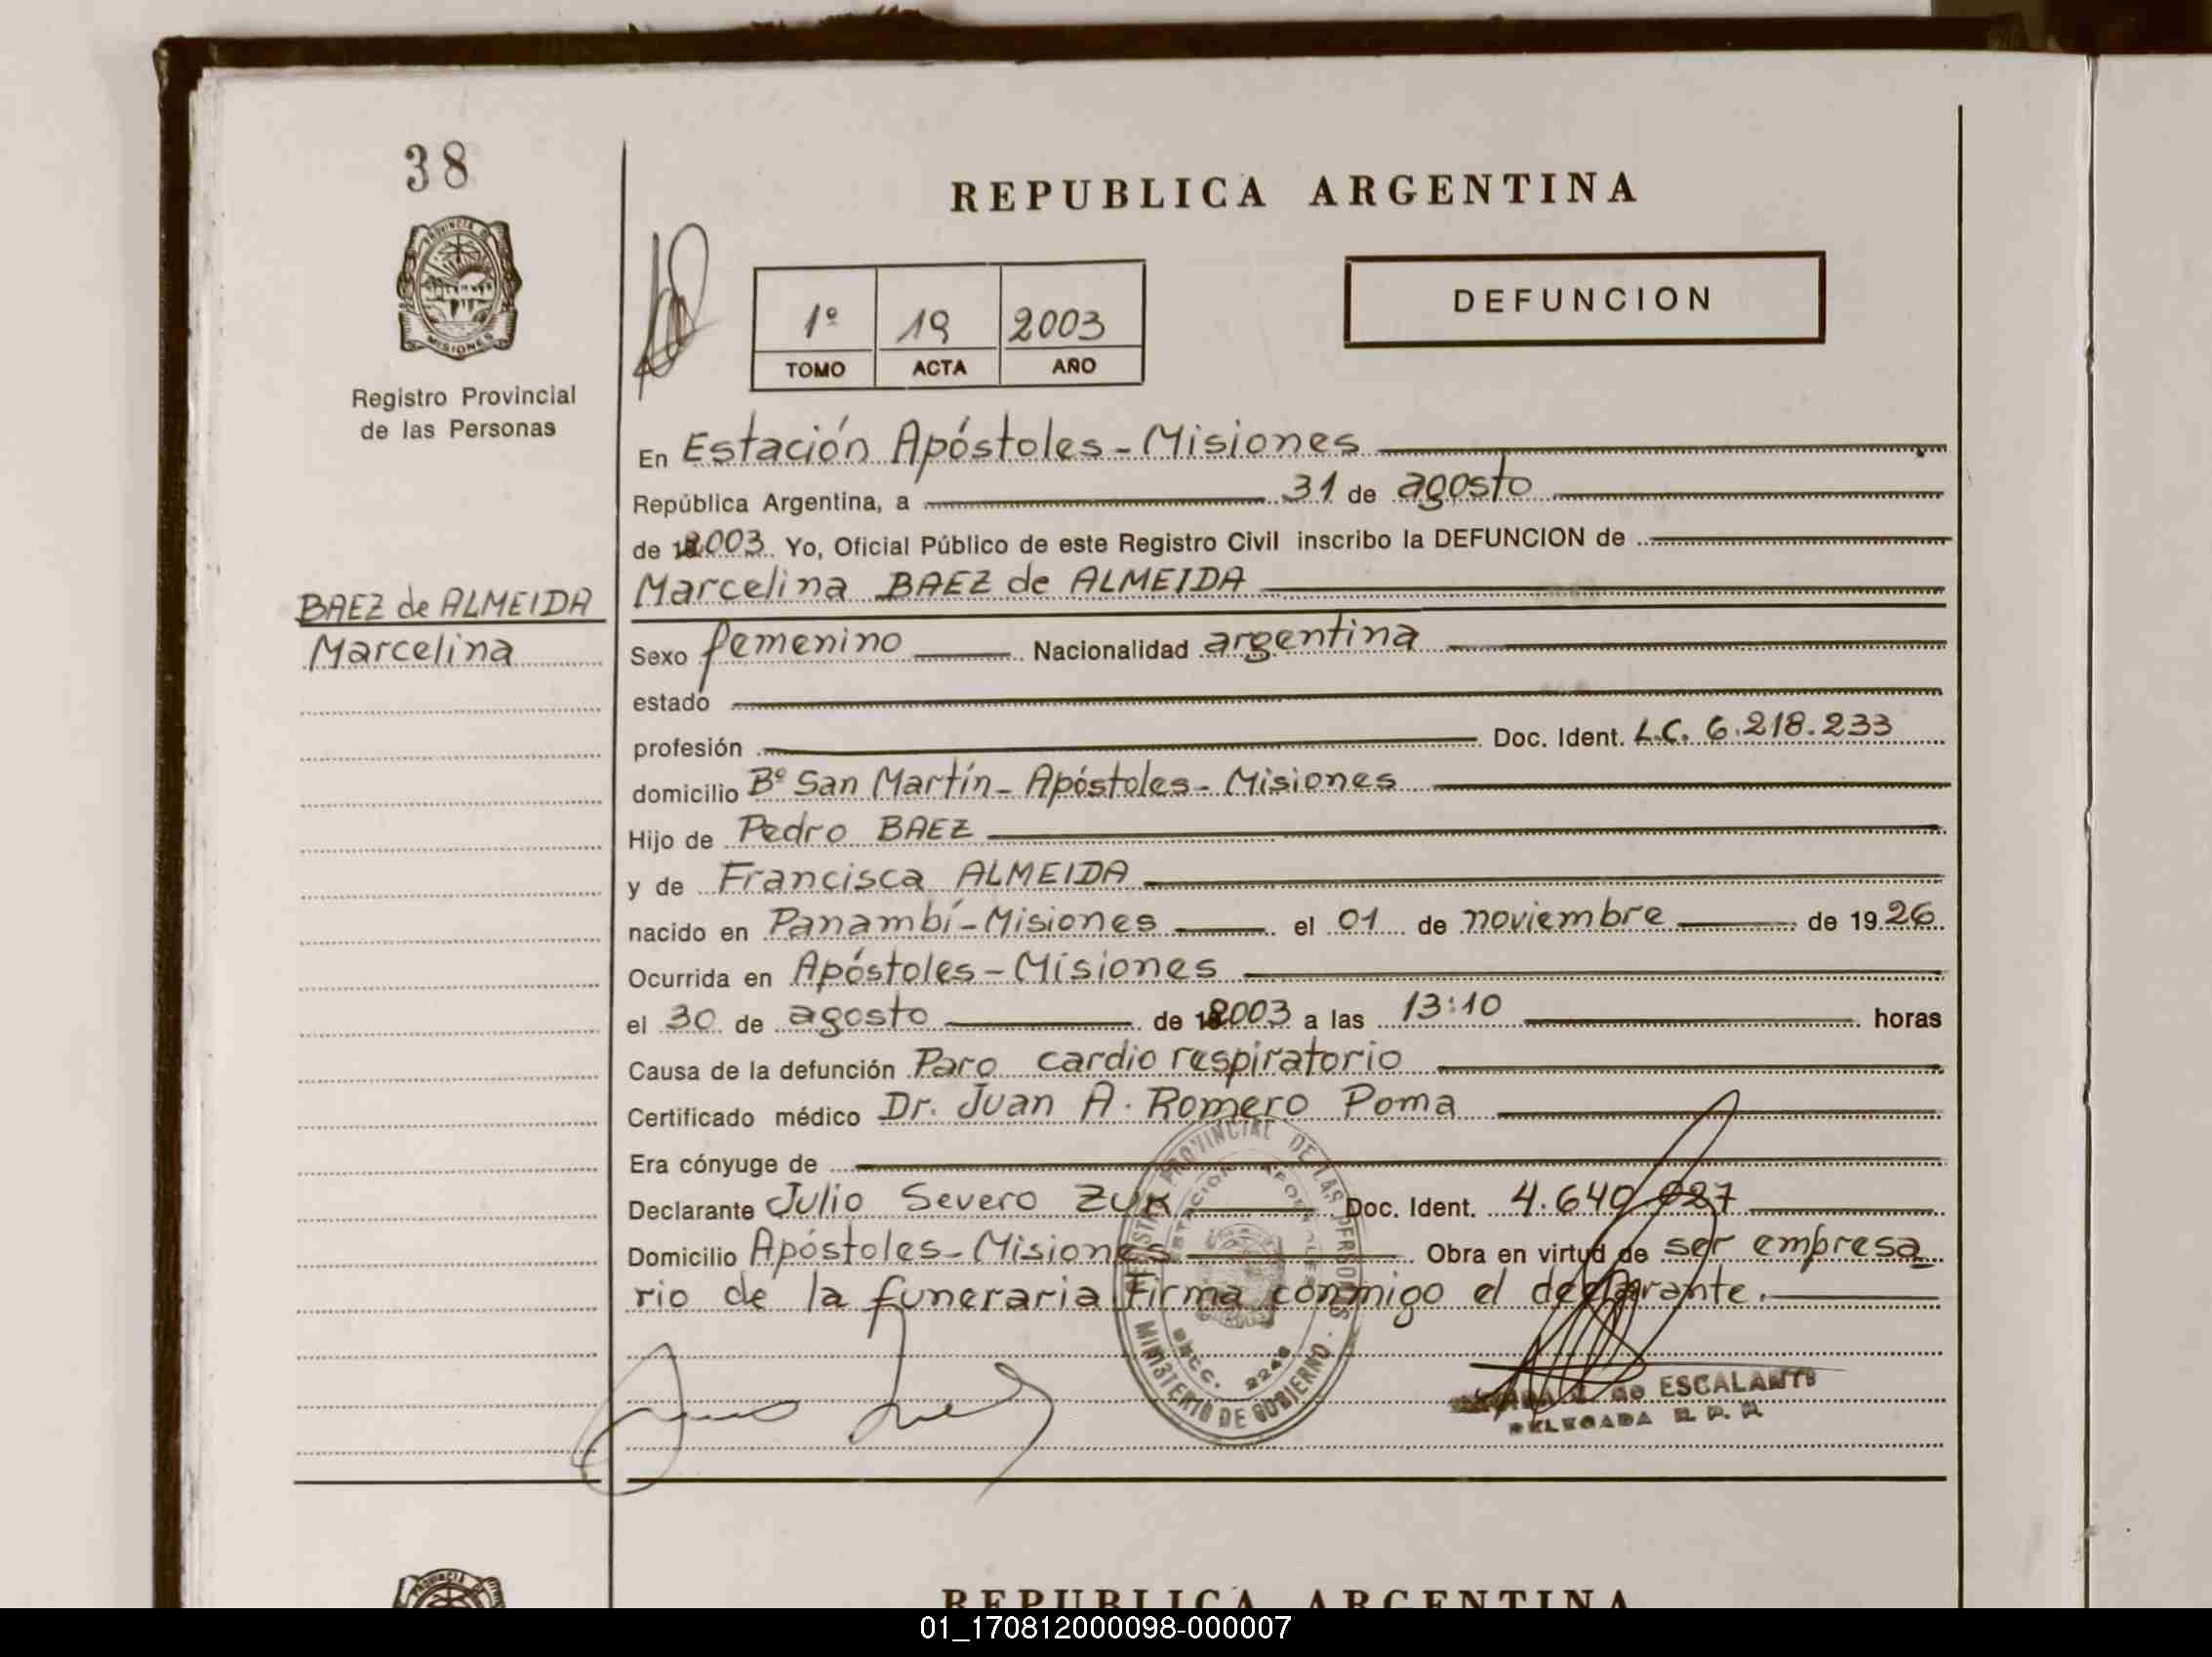 38
PROVINCIA DE
MISIONES
Registro Provincial
de las Personas
BAEZ de ALMEIDA
Marcelina
REPUBLICA ARGENTINA
1º 19 2003
TOMO ACTA AÑO
DEFUNCION
En Estación Apóstoles - Misiones
República Argentina, a 31 de agosto
de 2003 Yo, Oficial Público de este Registro Civil inscribo la DEFUNCION de
Marcelina BAEZ de ALMEIDA
Sexo femenino Nacionalidad argentina
estado
profesión Doc. Ident. L.C. 6.218.233
domicilio Bº San Martín - Apóstoles - Misiones
Hijo de Pedro BAEZ
y de Francisca ALMEIDA
nacido en Panambí - Misiones el 01 de noviembre de 1926
Ocurrida en Apóstoles - Misiones
el 30 de agosto de 2003 a las 13:10 horas
Causa de la defunción Paro cardio respiratorio
Certificado médico Dr. Juan A. Romero Poma
Era cónyuge de
Declarante Julio Severo ZUK Doc. Ident. 4.640.027
Domicilio Apóstoles - Misiones Obra en virtud de ser empresa
rio de la funeraria Firma conmigo el declarante.
PROVINCIAL DE LAS PERSONAS
MINISTERIO DE GOBIERNO
ESTACION
SECC. 2246
de ESCALANTE
DELEGADA R. P. P.
REPUBLICA ARGENTINA
01_170812000098-000007